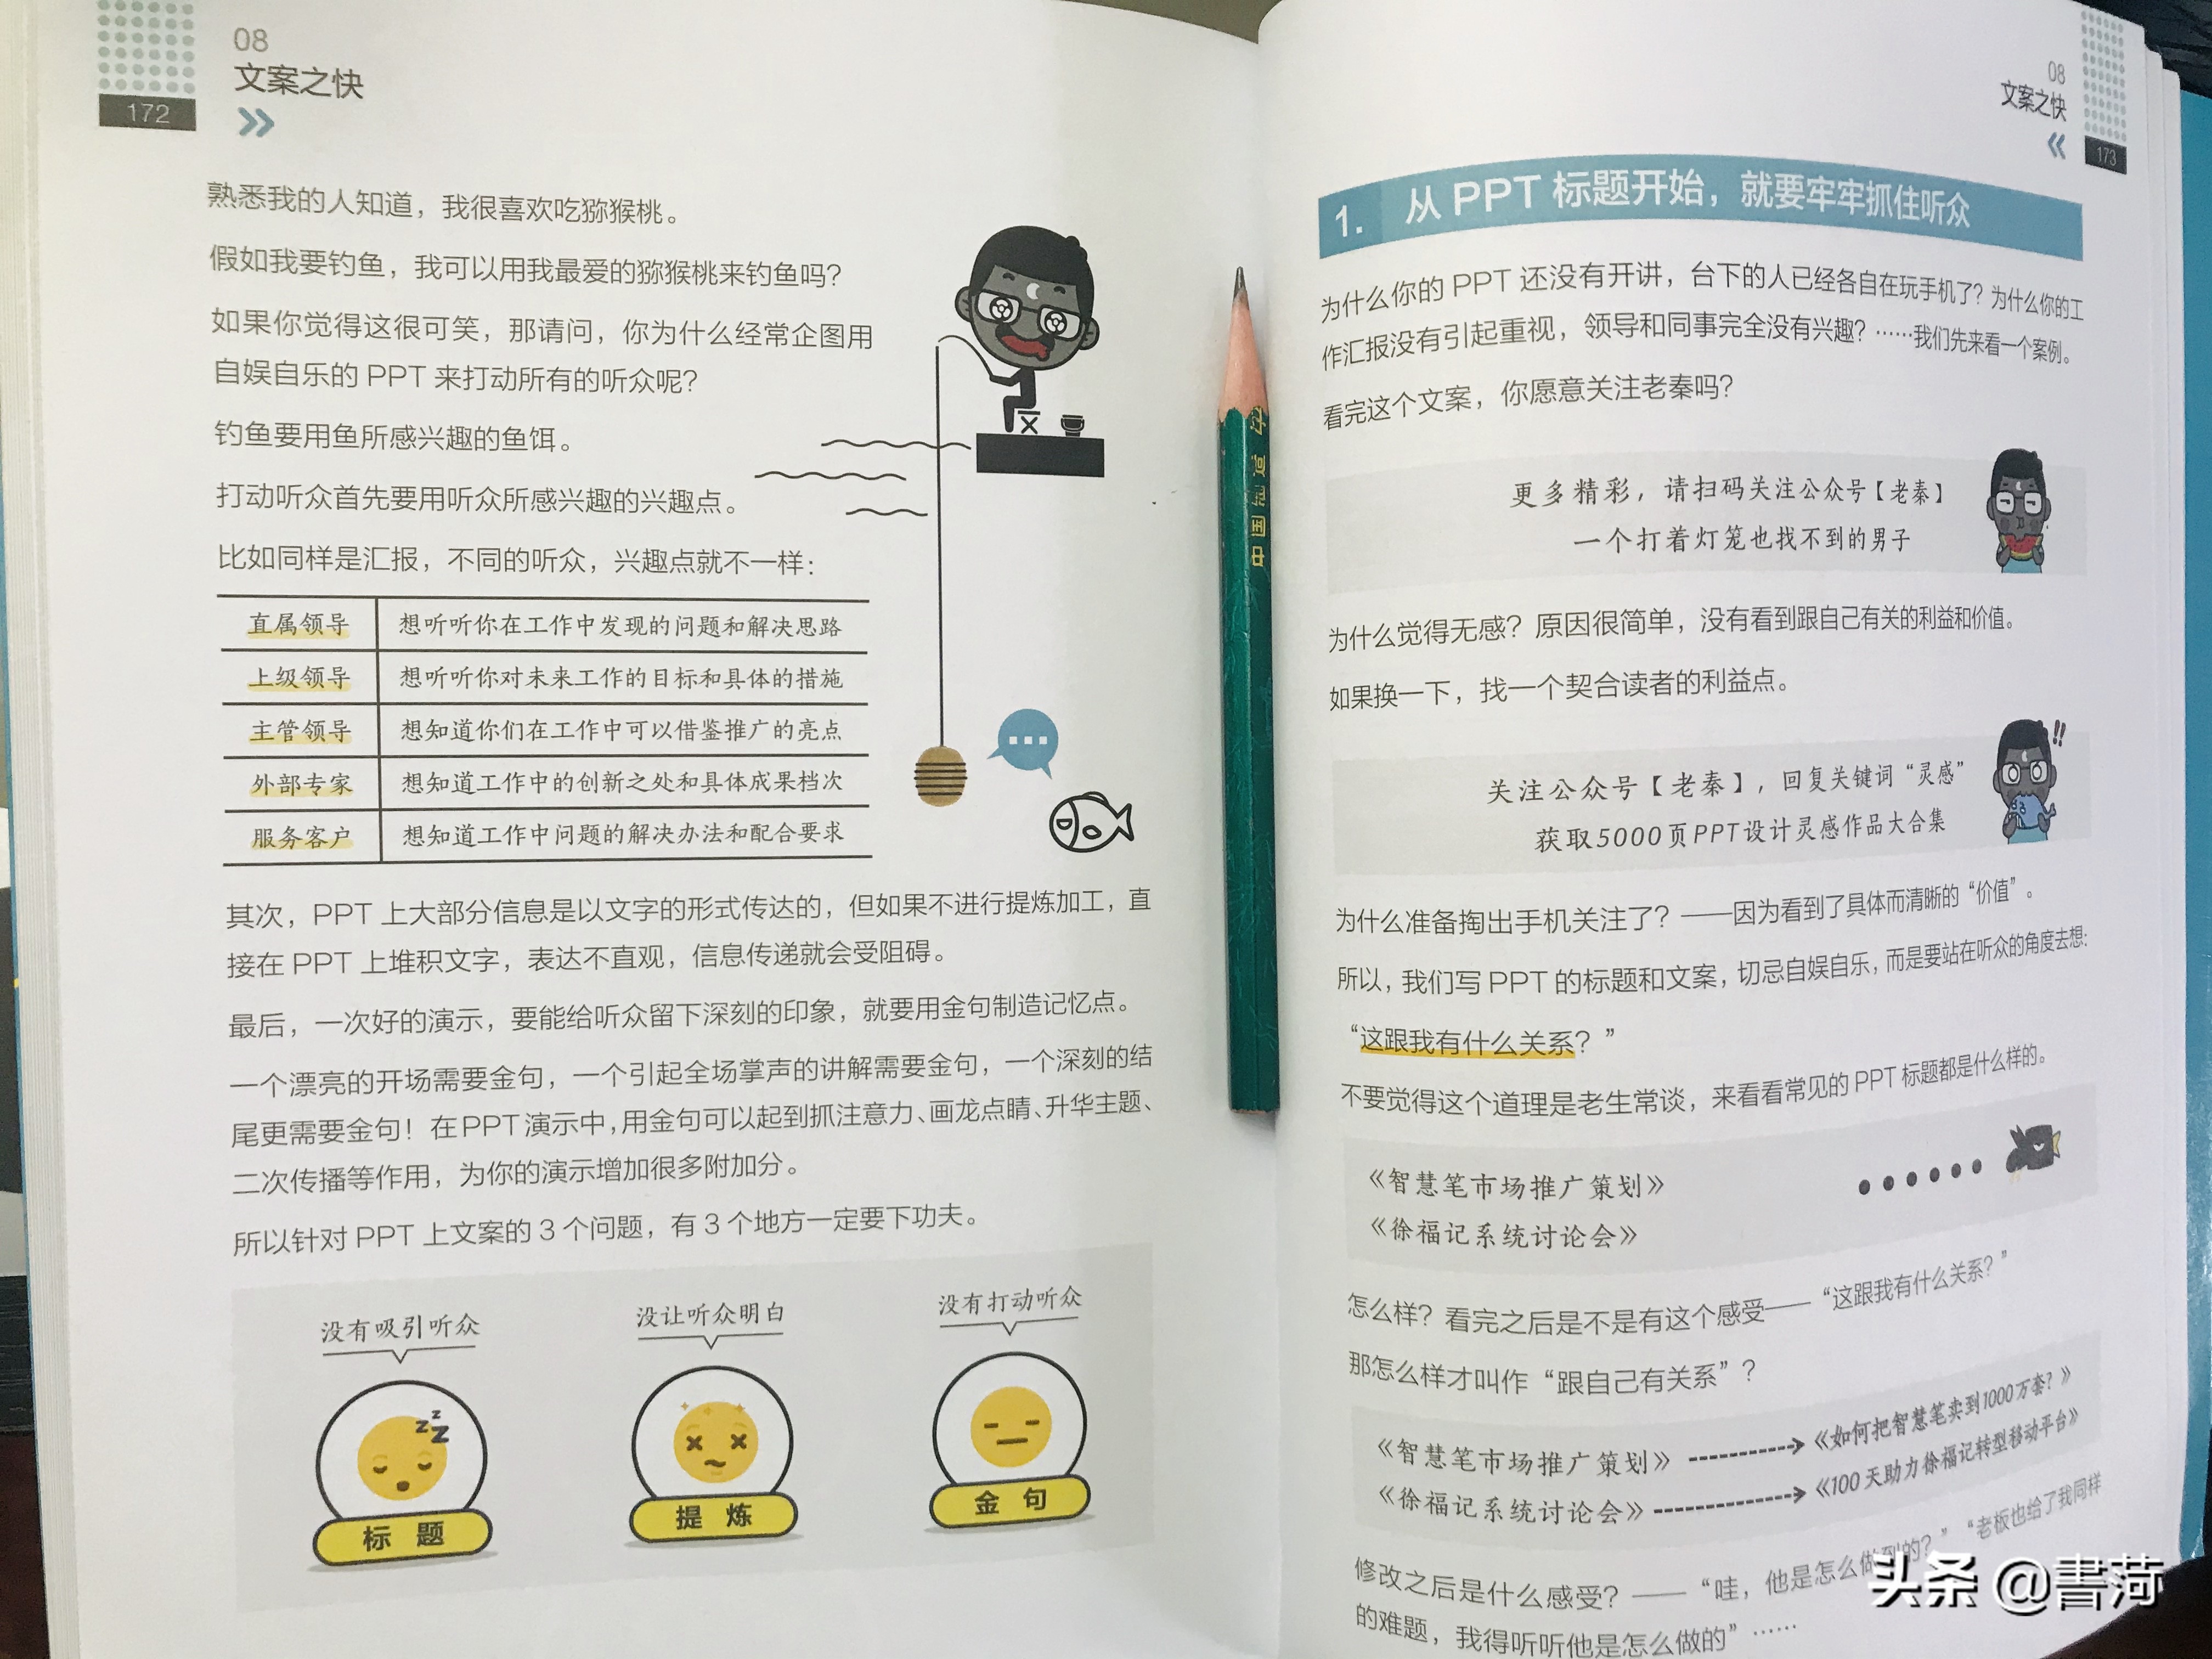 172
08
文案之快
熟悉我的人知道，我很喜欢吃猕猴桃。
假如我要钓鱼，我可以用我最爱的猕猴桃来钓鱼吗？
如果你觉得这很可笑，那请问，你为什么经常企图用
自娱自乐的 PPT 来打动所有的听众呢？
钓鱼要用鱼所感兴趣的鱼饵。
打动听众首先要用听众所感兴趣的兴趣点。
比如同样是汇报，不同的听众，兴趣点就不一样：
直属领导 想听听你在工作中发现的问题和解决思路
上级领导 想听听你对未来工作的目标和具体的措施
主管领导 想知道你们在工作中可以借鉴推广的亮点
外部专家 想知道工作中的创新之处和具体成果档次
服务客户 想知道工作中问题的解决办法和配合要求
其次，PPT 上大部分信息是以文字的形式传达的，但如果不进行提炼加工，直
接在 PPT 上堆积文字，表达不直观，信息传递就会受阻碍。
最后，一次好的演示，要能给听众留下深刻的印象，就要用金句制造记忆点。
一个漂亮的开场需要金句，一个引起全场掌声的讲解需要金句，一个深刻的结
尾更需要金句！在 PPT 演示中，用金句可以起到抓注意力、画龙点睛、升华主题、
二次传播等作用，为你的演示增加很多附加分。
所以针对 PPT 上文案的 3 个问题，有 3 个地方一定要下功夫。
没有吸引听众
没让听众明白
没有打动听众
z z z
标 题
提 炼
金 句
中国
08
文案之快
173
1. 从 PPT 标题开始，就要牢牢抓住听众
为什么你的 PPT 还没有开讲，台下的人已经各自在玩手机了？为什么你的工
作汇报没有引起重视，领导和同事完全没有兴趣？……我们先来看一个案例。
看完这个文案，你愿意关注老秦吗？
更多精彩，请扫码关注公众号【老秦】
一个打着灯笼也找不到的男子
为什么觉得无感？原因很简单，没有看到跟自己有关的利益和价值。
如果换一下，找一个契合读者的利益点。
!!
关注公众号【老秦】，回复关键词“灵感”
获取5000页PPT设计灵感作品大合集
为什么准备掏出手机关注了？——因为看到了具体而清晰的“价值”。
所以，我们写 PPT 的标题和文案，切忌自娱自乐，而是要站在听众的角度去想：
“这跟我有什么关系？”
不要觉得这个道理是老生常谈，来看看常见的 PPT 标题都是什么样的。
《智慧笔市场推广策划》
《徐福记系统讨论会》
怎么样？看完之后是不是有这个感受——“这跟我有什么关系？”
那怎么样才叫作“跟自己有关系”？
《智慧笔市场推广策划》 《如何把智慧笔卖到1000万套？》
《徐福记系统讨论会》 《100 天助力徐福记转型移动平台》
修改之后是什么感受？——“哇，他是怎么做到的？”“老板也给了我同样
的难题，我得听听他是怎么做的”……
头条 @書菏